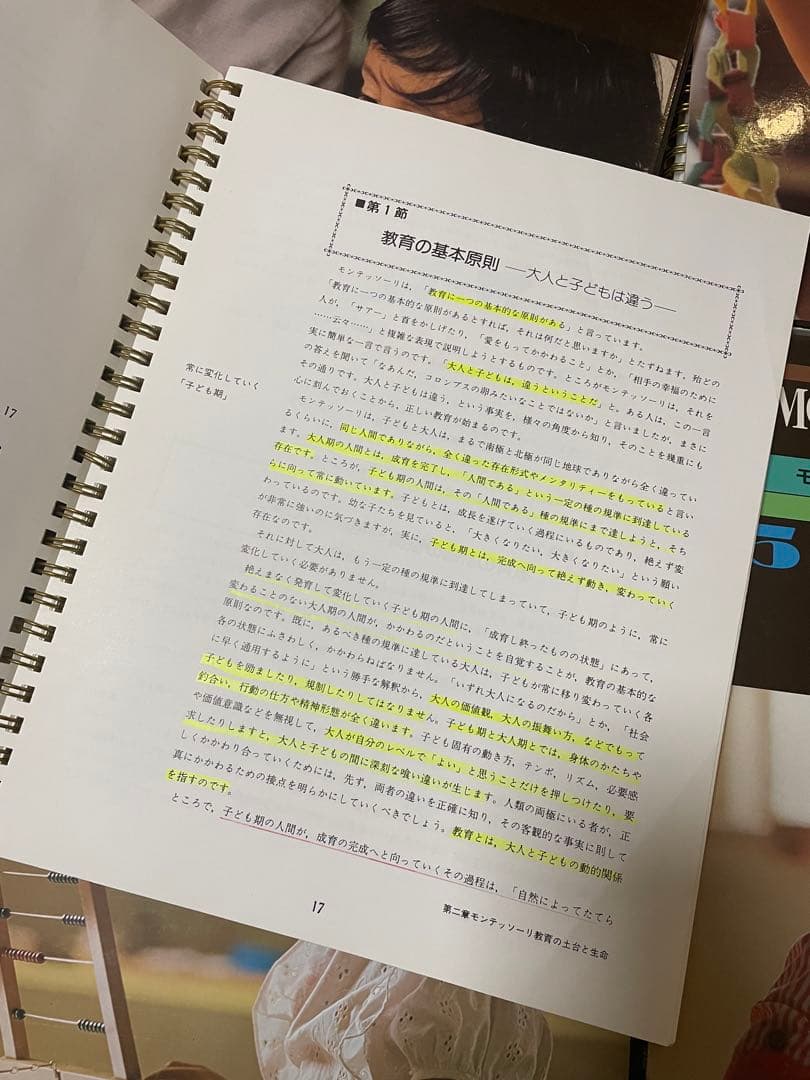 ■第1節
教育の基本原則 ―大人と子どもは違う―
モンテッソーリは、「教育に一つの基本的な原則がある」と言っています。
「教育に一つの基本的な原則があるとすれば、それは何だと思いますか」とたずねます。殆どの
人が、「サアー」と首をかしげたり、「愛をもってかかわること」とか、「相手の幸福のために
……云々……」と複雑な表現で説明しようとするものです。ところがモンテッソーリは、それを
実に簡単な一言で言うのです。「大人と子どもは、違うということだ」と。ある人は、この一言
の答えを聞いて「なあんだ、コロンブスの卵みたいなことではないか」と言いましたが、まさに
その通りです。大人と子どもは違う、という事実を、様々の角度から知り、そのことを幾重にも
心に刻んでおくことから、正しい教育が始まるのです。
モンテッソーリは、子どもと大人は、まるで南極と北極が同じ地球でありながら全く違ってい
るくらいに、同じ人間でありながら、全く違った存在形式やメンタリティーをもっていると言い
ます。大人期の人間とは、成育を完了し、「人間である」という一定の種の規準に到達している
存在です。ところが、子ども期の人間は、その「人間である」種の規準にまで達しようと、そち
らに向って常に動いています。子どもとは、成長を遂げていく過程にいるものであり、絶えず変
わっているのです。幼な子たちを見ていると、「大きくなりたい、大きくなりたい」という願い
が非常に強いのに気づきますが、実に、子ども期とは、完成へ向って絶えず動き、変わっていく
存在なのです。
それに対して大人は、もう一定の種の規準に到達してしまっていて、子ども期のように、常に
変化していく必要がありません。
絶えまなく発育して変化していく子ども期の人間に、「成育し終ったものの状態」にあって、
変わることのない大人期の人間が、かかわるのだということを自覚することが、教育の基本的な
原則なのです。既に、あるべき種の規準に達している大人は、子どもが常に移り変わっていく各
各の状態にふさわしく、かかわらねばなりません。「いずれ大人になるのだから」とか、「社会
に早く通用するように」という勝手な解釈から、大人の価値観、大人の振舞い方、などでもって
子どもを励ましたり、規制したりしてはなりません。子ども期と大人期とでは、身体のかたちや
釣合い、行動の仕方や精神形態が全く違います。子ども固有の動き方、テンポ、リズム、必要感
や価値意識などを無視して、大人が自分のレベルで「よい」と思うことだけを押しつけたり、要
求したりしますと、大人と子どもの間に深刻な喰い違いが生じます。人類の両極にいる者が、正
しくかかわり合っていくためには、先ず、両者の違いを正確に知り、その客観的な事実に則して
真にかかわるための接点を明らかにしていくべきでしょう。教育とは、大人と子どもの動的関係
を指すのです。
ところで、子ども期の人間が、成育の完成へと向っていくその過程は、「自然によってたてら
常に変化していく
「子ども期」
17
第二章モンテッソーリ教育の土台と生命
17
5